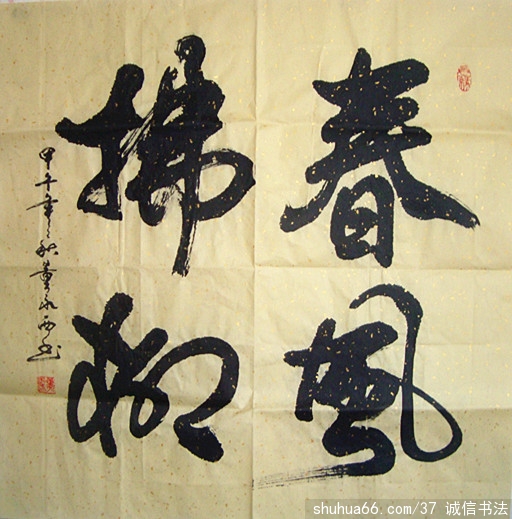 春風
拂柳
甲午年之秋董永西书
shuhua66.com/37 诚信书法